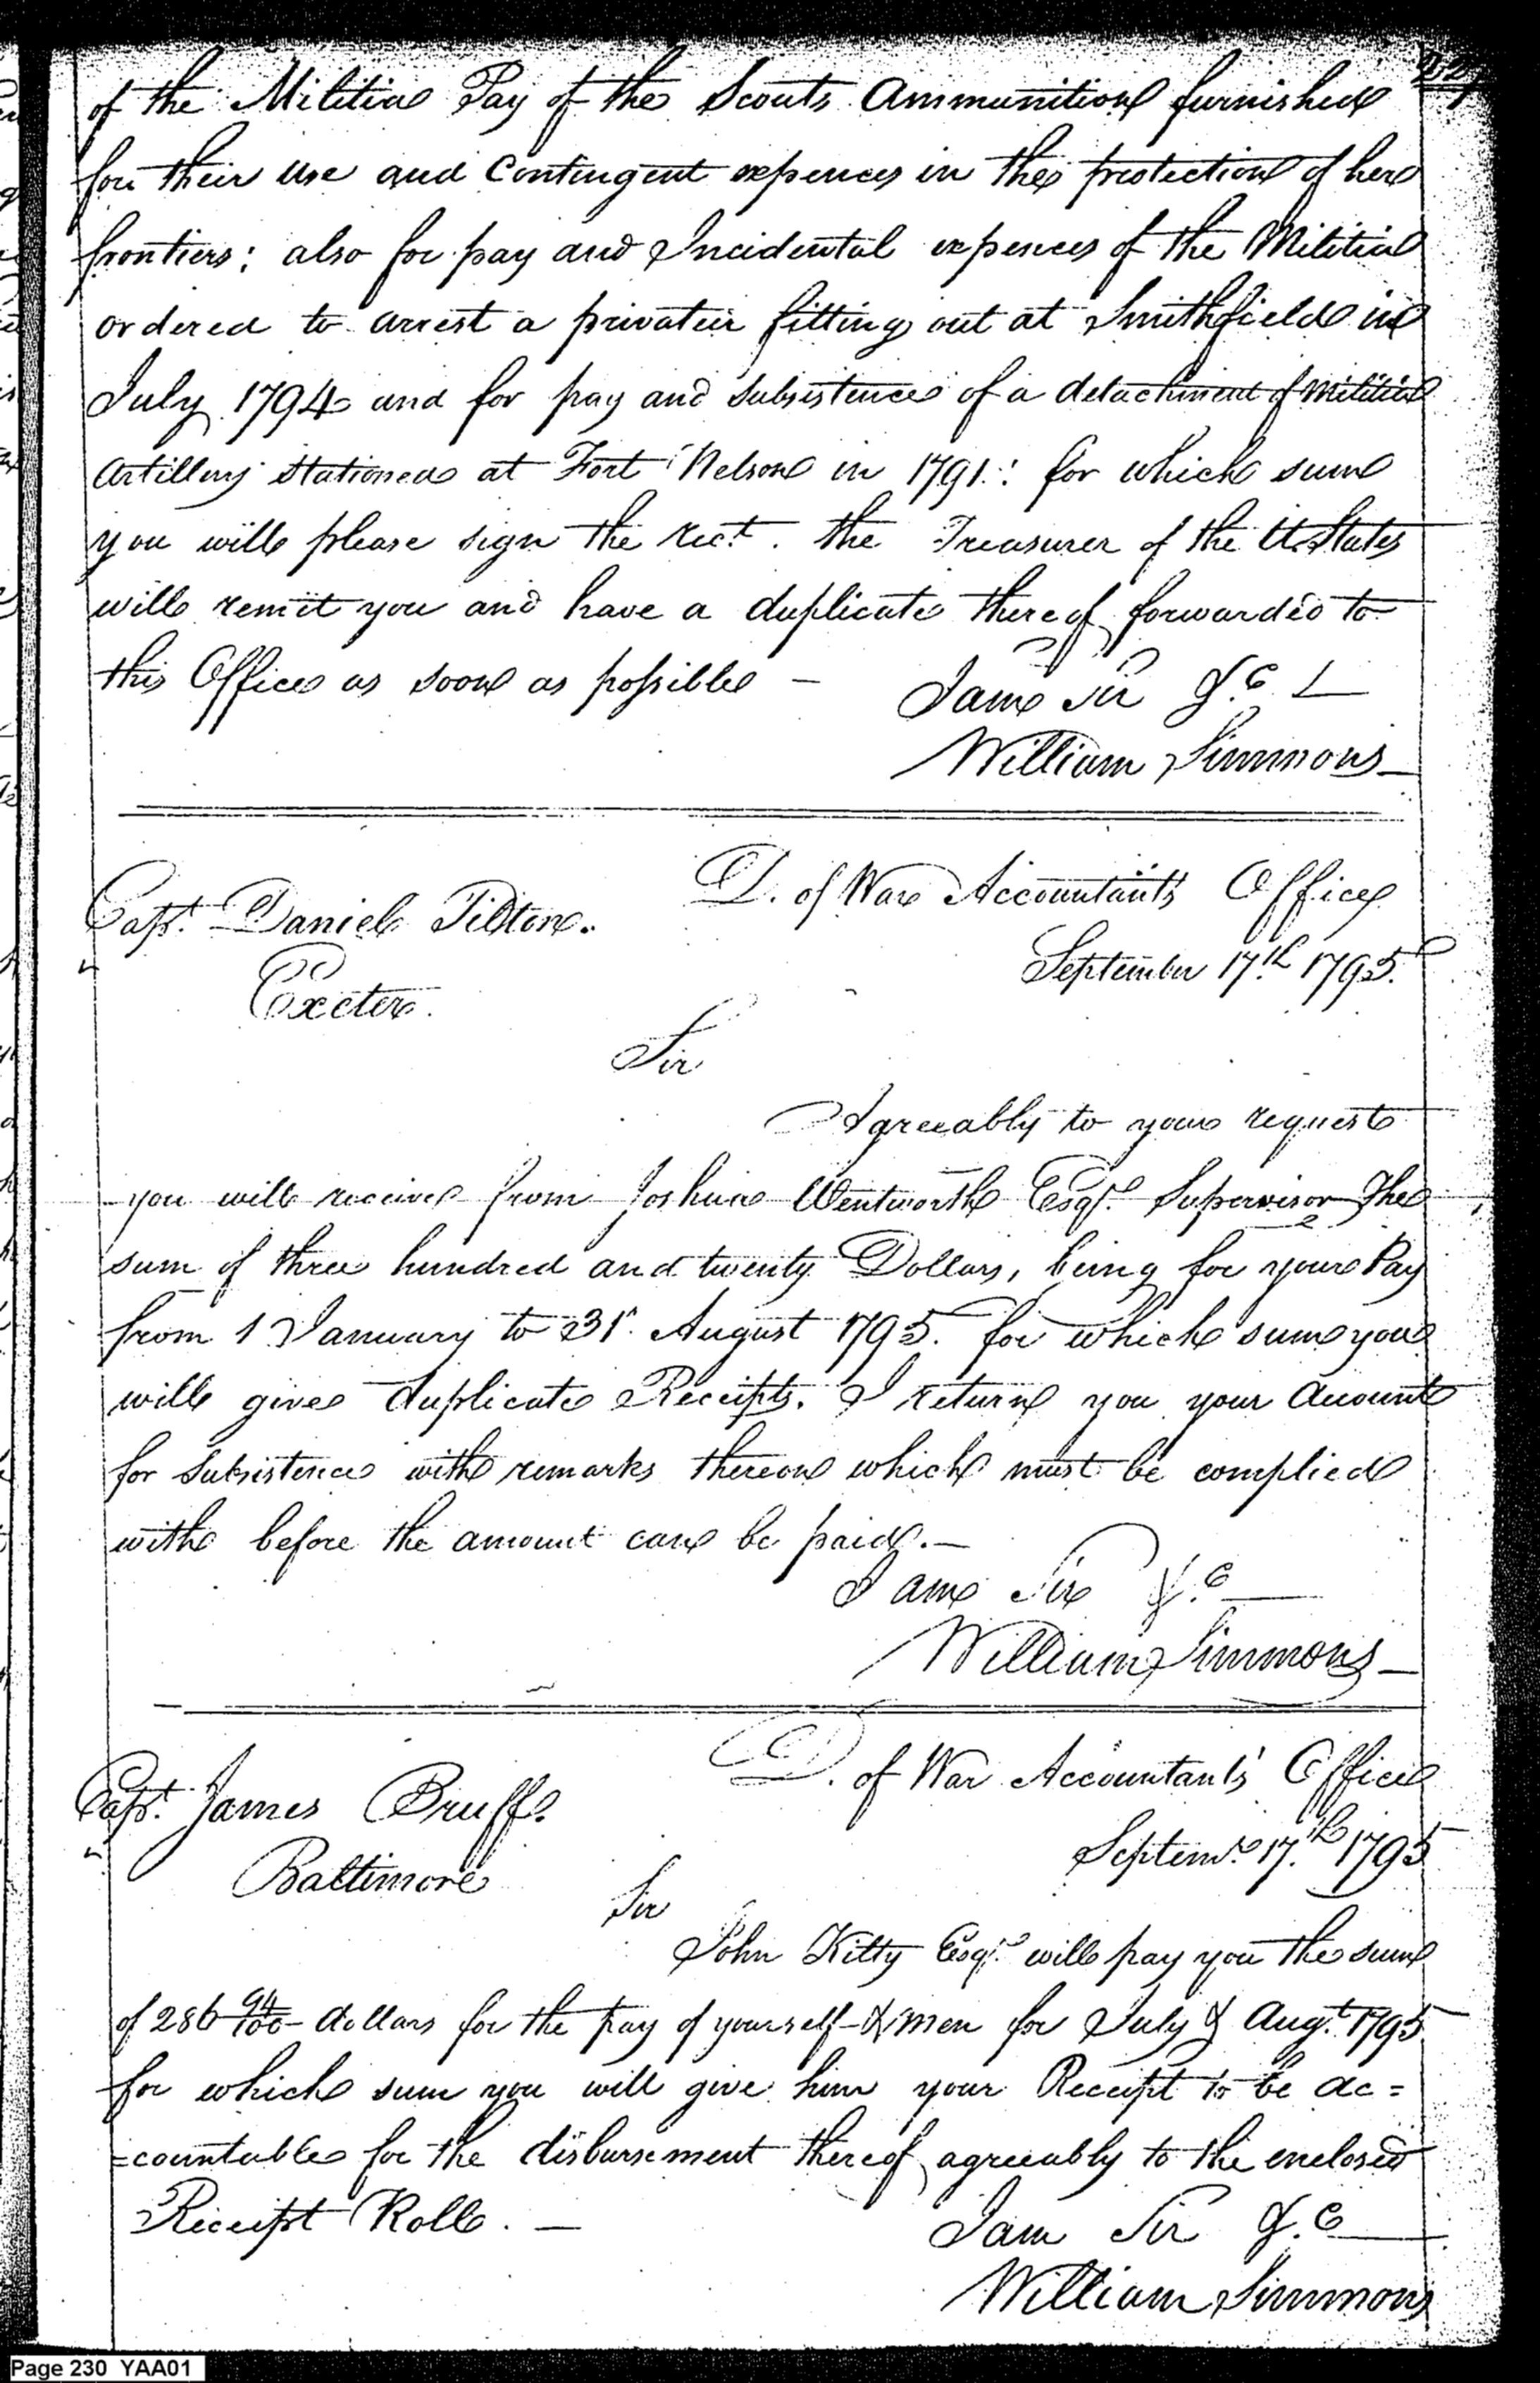 of the Militia Pay of the Scouts Ammunition furnished
for their use and Contingent expences in the protection of her
frontiers; also for pay and Incidental expences of the Militia
ordered to arrest a privateer fitting out at Smithfield in
July 1794 and for pay and subsistence of a detachment of Militia
Artillery stationed at Fort Nelson in 1791: for which sum
you will please sign the rect. the Treasurer of the U. States
will remit you and have a duplicate thereof forwarded to
this Office as soon as possible –
I am Sir &c
William Simmons
D. of War Accountant's Office
September 17th 1795.
Capt. Daniel Tilton.
Exeter.
Sir
Agreeably to your request
you will receive from Joshua Wentworth Esqr. Supervisor The
sum of three hundred and twenty Dollars, being for your Pay
from 1 January to 31st August 1795. for which sum you
will give duplicate Receipts. I return you your Account
for Subsistence with remarks thereon which must be complied
with before the amount can be paid. —
I am Sir &c
William Simmons
D. of War Accountant's Office
Septemr. 17.th 1795
Capt. James Bruff.
Baltimore
Sir
John Kilty Esqr. will pay you the sum
of 286 94/100 dollars for the pay of yourself & men for July & Augt. 1795
for which sum you will give him your Receipt to be ac=
=countable for the disbursement thereof agreeably to the enclosed
Receipt Roll. —
I am Sir &c
William Simmons
Page 230 YAA01